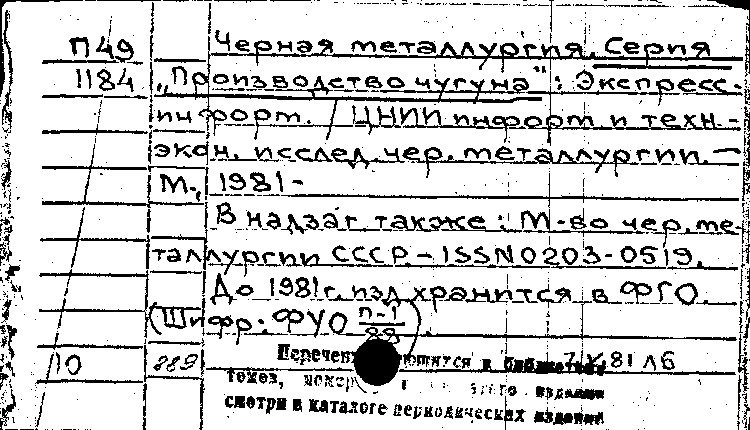 П49 Черная металлургия. Серия
1184 „Производство чугуна“: Экспресс-
информ. / ЦНИИ информ. и техн.-
экон. исслед. чер. металлургии. —
М., 1981-
В надзаг также: М-во чер. ме-
таллургии СССР. - ISSN 0203-0519.
До 1981г. изд хранится в ФГО.
(Шифр: ФУО п-1/88).
10 889 7 X 81 ЛБ
в библиотеке
томов,
смотри в каталоге периодических изданий